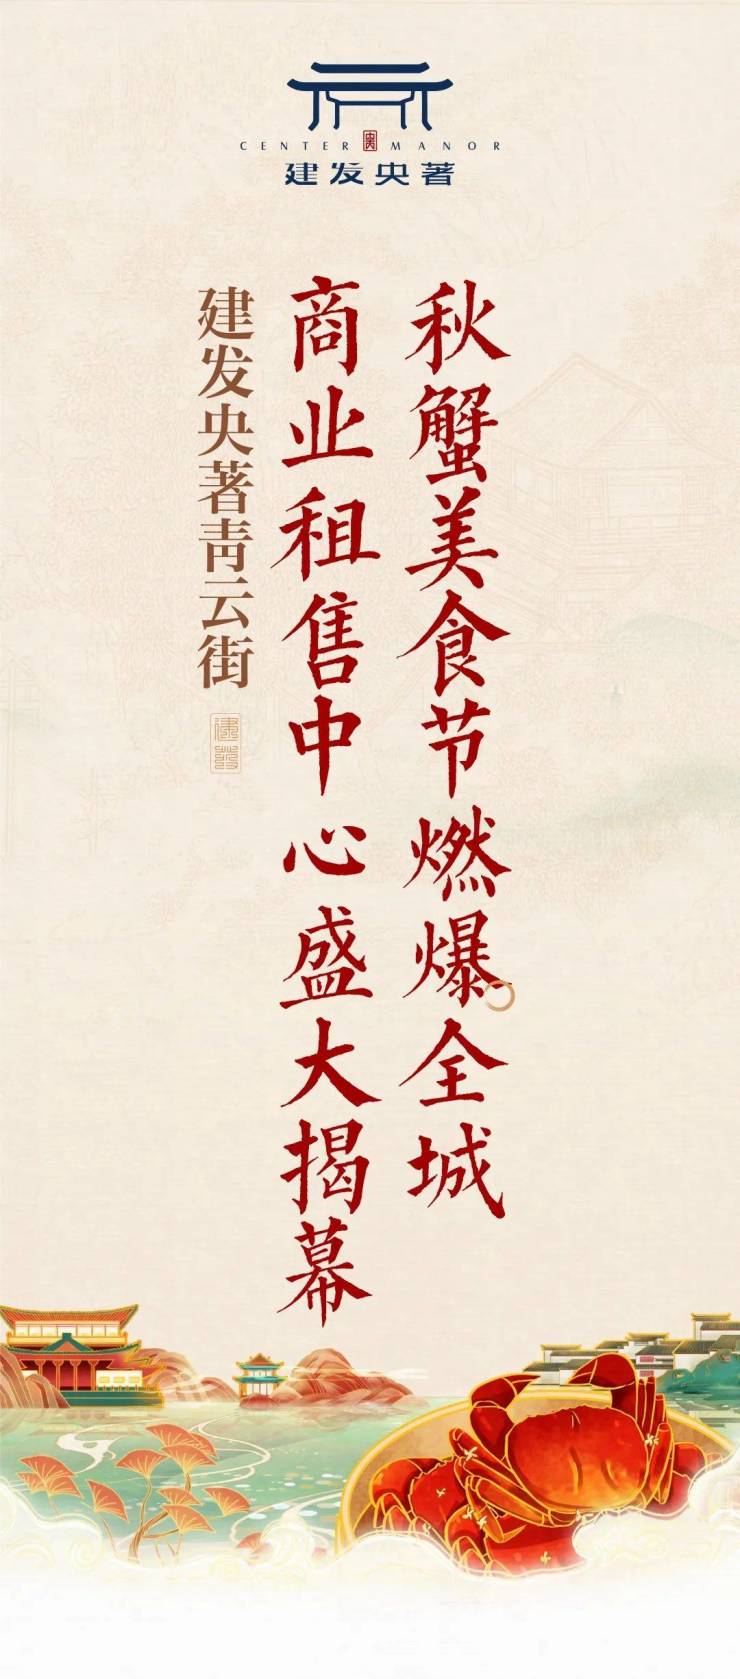 CENTER MANOR
建发央著
秋蟹美食节燃爆全城
商业租售中心盛大揭幕
建发央著青云街
建发